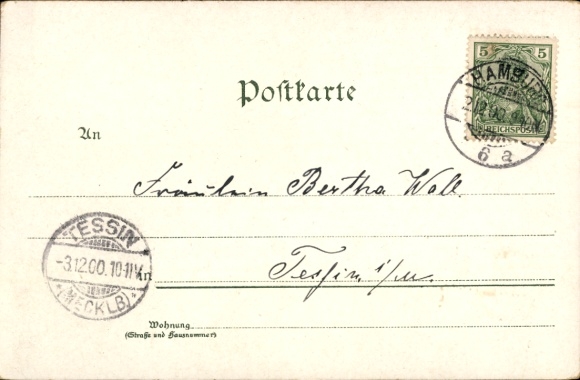 5 5
HAMBURG
2.12.00
REICHSPOST
6 a
Postkarte
An
Fräulein Bertha Woll.
TESSIN
-3.12.00.10-11V.
(MECKLB)
in Tessin i/M.
Wohnung
(Straße und Hausnummer)